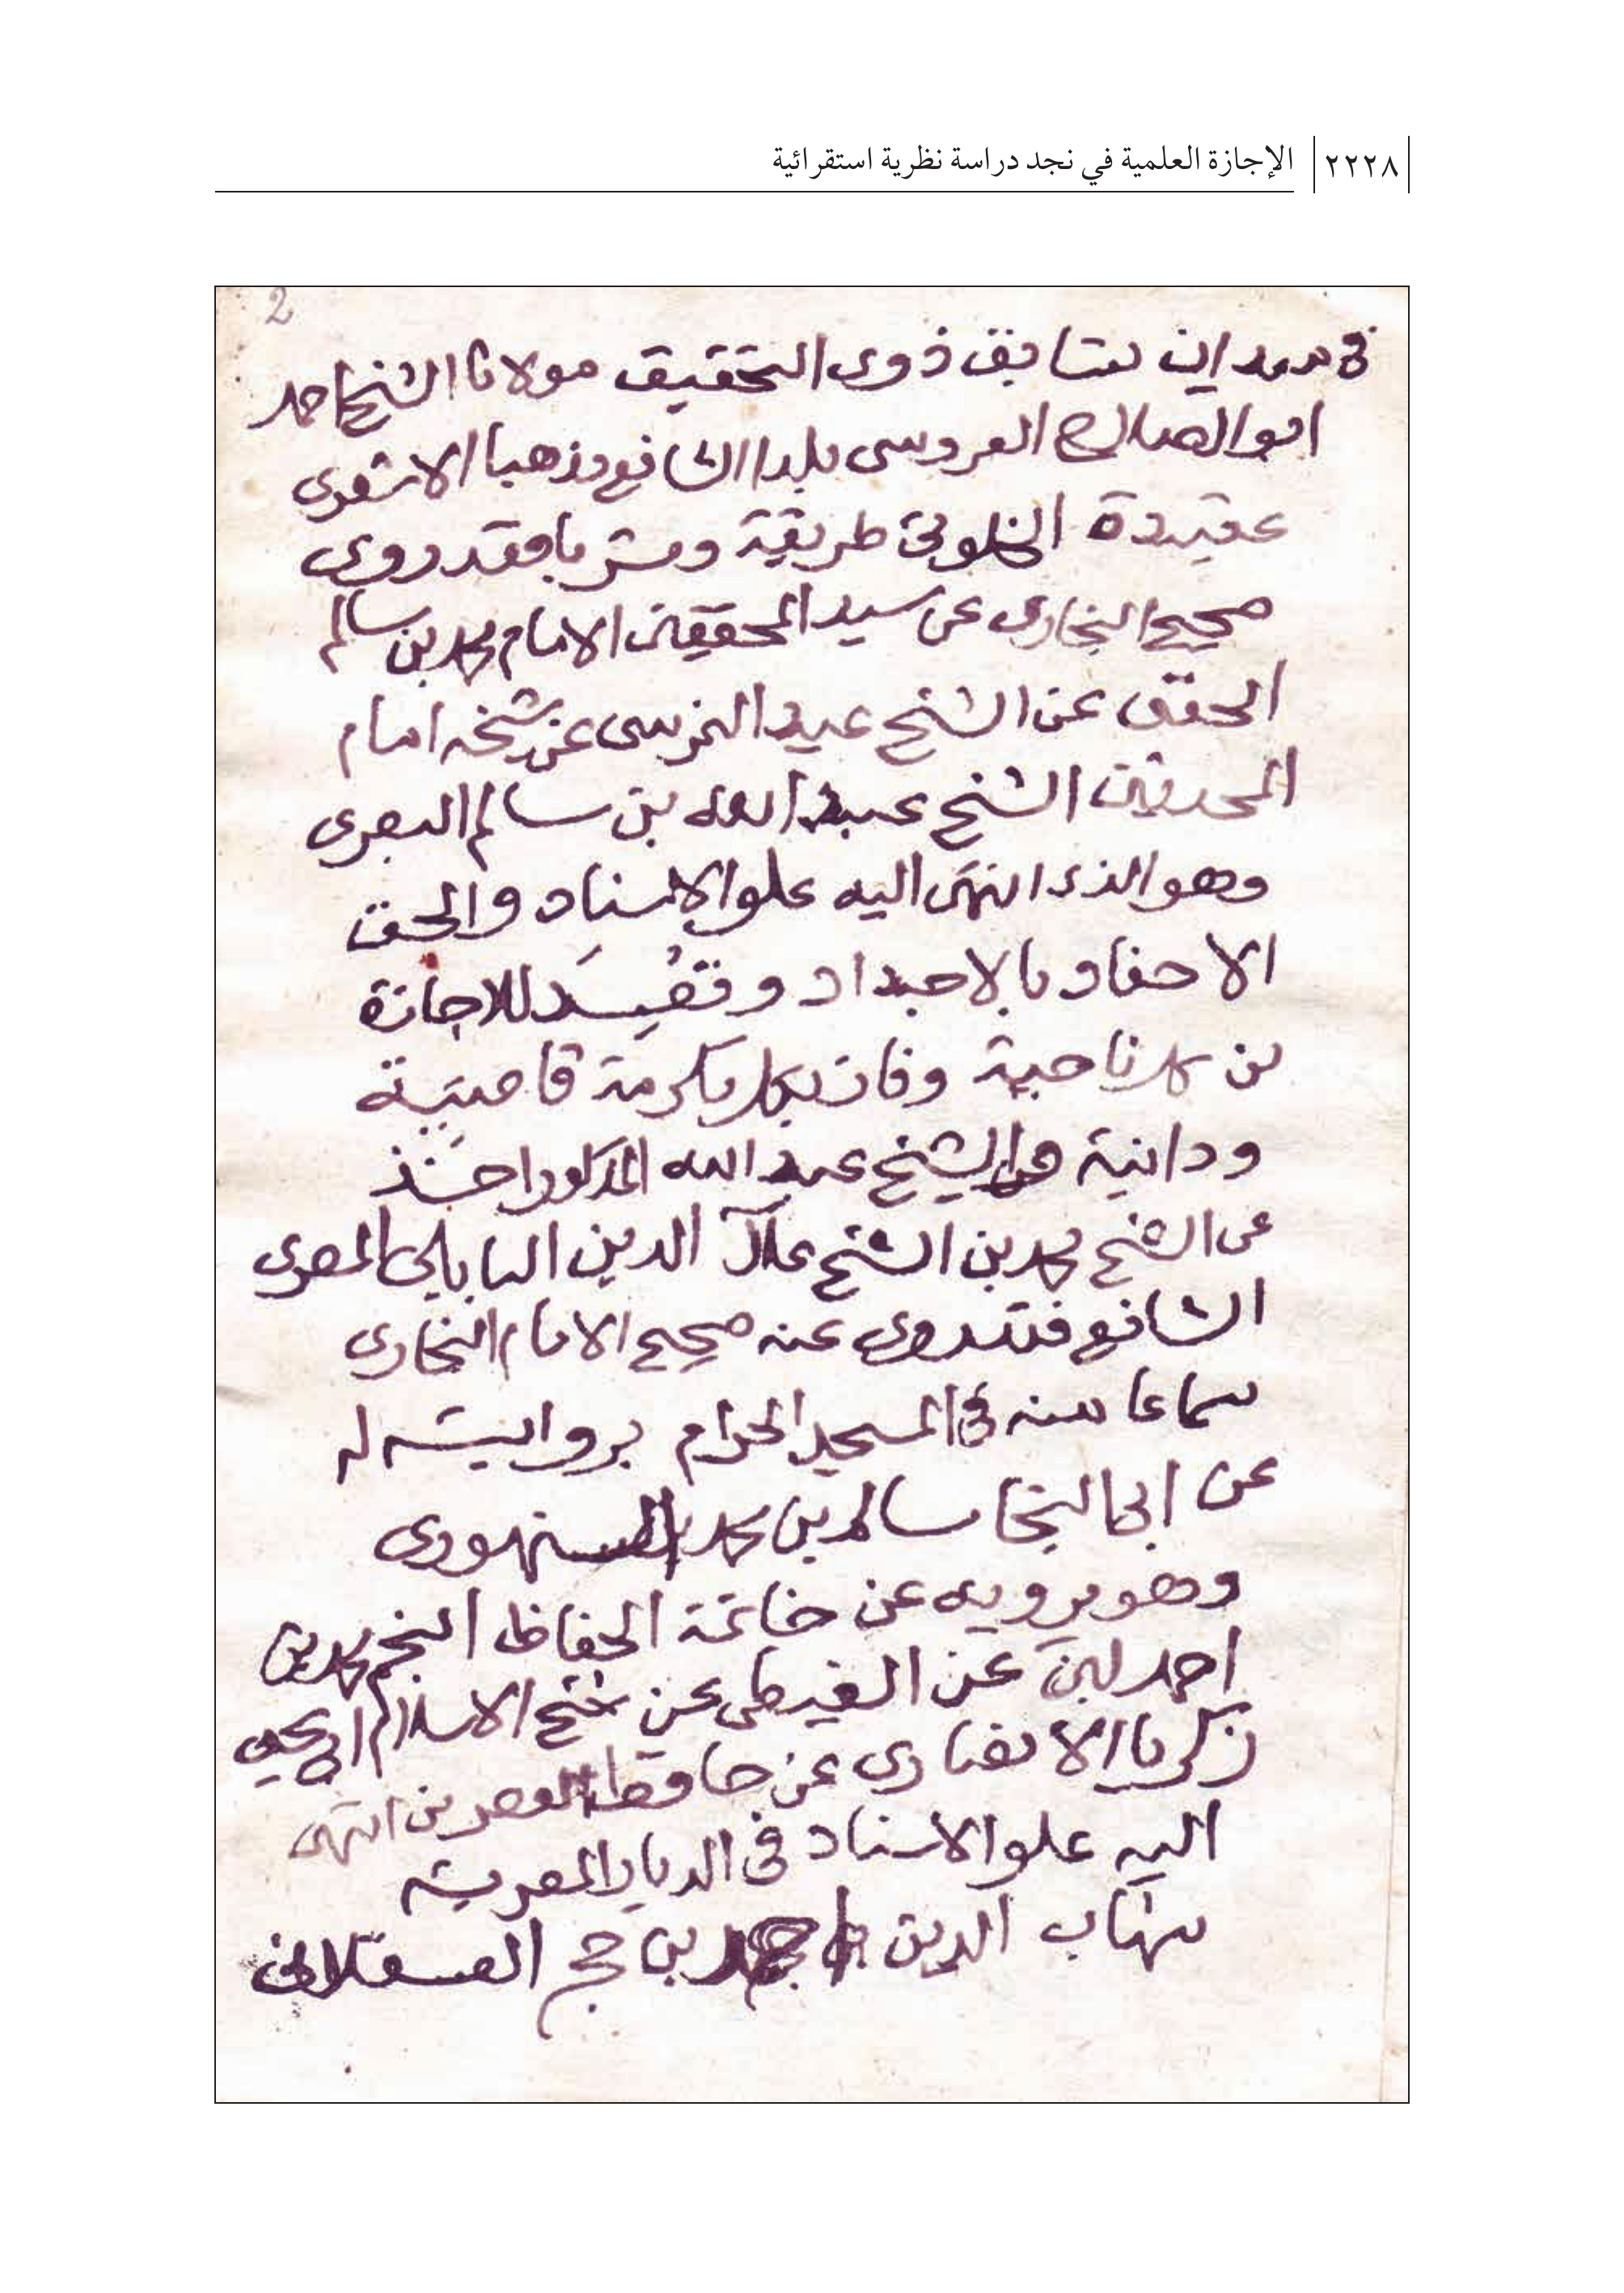 ٢٢٢٨ الإجازة العلمية في نجد دراسة نظرية استقرائية
2
في ميدان تسابق ذوى التحقيق مولانا الشيخ احمد
ابو الصلاح العروسى بلدا الشافعى مذهبا الاشعرى
عقيدة الخلوتى طريقة ومشربا فقد روى
صحيح البخارى عن سيد المحققين الامام محمد بن سالم
الحفنى عن الشيخ عيد النمرسى عن شيخه امام
المحدثين الشيخ عبد الله بن سالم البصرى
وهو الذى انتهى اليه علو الاسناد والحق
الاحفاد بالاجداد وتقيد للاجازة
من كل ناحية وفاز بكل مكرمة قاصية
ودانية والشيخ عبد الله المذكور اخذ
عن الشيخ محمد بن الشيخ علآ الدين البابلى المصرى
الشافعى فقد روى عنه صحيح الامام البخارى
سماعا منه فى المسجد الحرام بروايته له
عن ابى النجا سالم بن محمد السنهورى
وهو يرويه عن خاتمة الحفاظ النجم محمد بن
احمد عن الغيطى عن شيخ الاسلام ابو يحيى
زكريا الانصارى عن حافظ العصر من انتهى
اليه علو الاسناد فى الديار المصرية
شهاب الدين احمد بن حجر العسقلانى